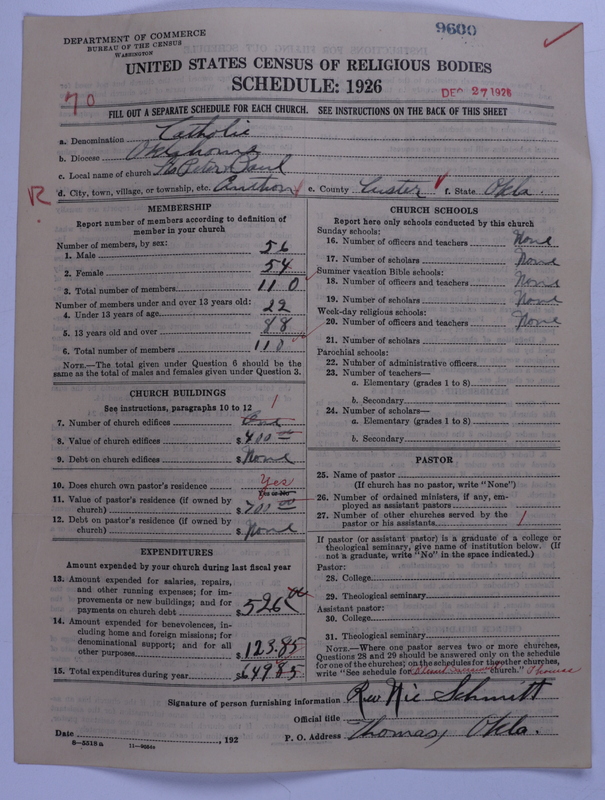 DEPARTMENT OF COMMERCE
BUREAU OF THE CENSUS
WASHINGTON
9600
UNITED STATES CENSUS OF RELIGIOUS BODIES
SCHEDULE: 1926
DEC 27 1926
70
FILL OUT A SEPARATE SCHEDULE FOR EACH CHURCH. SEE INSTRUCTIONS ON THE BACK OF THIS SHEET
a. Denomination Catholic
b. Diocese Oklahoma
c. Local name of church Sts Peter Paul
R. d. City, town, village, or township, etc. Anthon e. County Custer f. State Okla.
MEMBERSHIP
Report number of members according to definition of member in your church
Number of members, by sex:
1. Male 56
2. Female 54
3. Total number of members 110
Number of members under and over 13 years old:
4. Under 13 years of age 22
5. 13 years old and over 88
6. Total number of members 110
NOTE.—The total given under Question 6 should be the same as the total of males and females given under Question 3.
CHURCH BUILDINGS
See instructions, paragraphs 10 to 12
7. Number of church edifices One 1
8. Value of church edifices $400 00
9. Debt on church edifices $None
10. Does church own pastor's residence Yes
Yes or No
11. Value of pastor's residence (if owned by church) $700 00
12. Debt on pastor's residence (if owned by church) $None
EXPENDITURES
Amount expended by your church during last fiscal year
13. Amount expended for salaries, repairs, and other running expenses; for improvements or new buildings; and for payments on church debt $526 00
14. Amount expended for benevolences, including home and foreign missions; for denominational support; and for all other purposes $123.85
15. Total expenditures during year $649 85
CHURCH SCHOOLS
Report here only schools conducted by this church
Sunday schools:
16. Number of officers and teachers None
17. Number of scholars None
Summer vacation Bible schools:
18. Number of officers and teachers None
19. Number of scholars None
Week-day religious schools:
20. Number of officers and teachers None
21. Number of scholars
Parochial schools:
22. Number of administrative officers
23. Number of teachers—
a. Elementary (grades 1 to 8)
b. Secondary
24. Number of scholars—
a. Elementary (grades 1 to 8)
b. Secondary
PASTOR
25. Name of pastor
(If church has no pastor, write "None")
26. Number of ordained ministers, if any, employed as assistant pastors
27. Number of other churches served by the pastor or his assistants 1
If pastor (or assistant pastor) is a graduate of a college or theological seminary, give name of institution below. (If not a graduate, write "No" in the space indicated.)
Pastor:
28. College
29. Theological seminary
Assistant pastor:
30. College
31. Theological seminary
NOTE.—Where one pastor serves two or more churches, Questions 28 and 29 should be answered only on the schedule for one of the churches; on the schedules for the other churches, write "See schedule for church." Thomas
Signature of person furnishing information Rev Nic Schmitt
Official title
Date , 192
P. O. Address Thomas, Okla.
6—5518 a